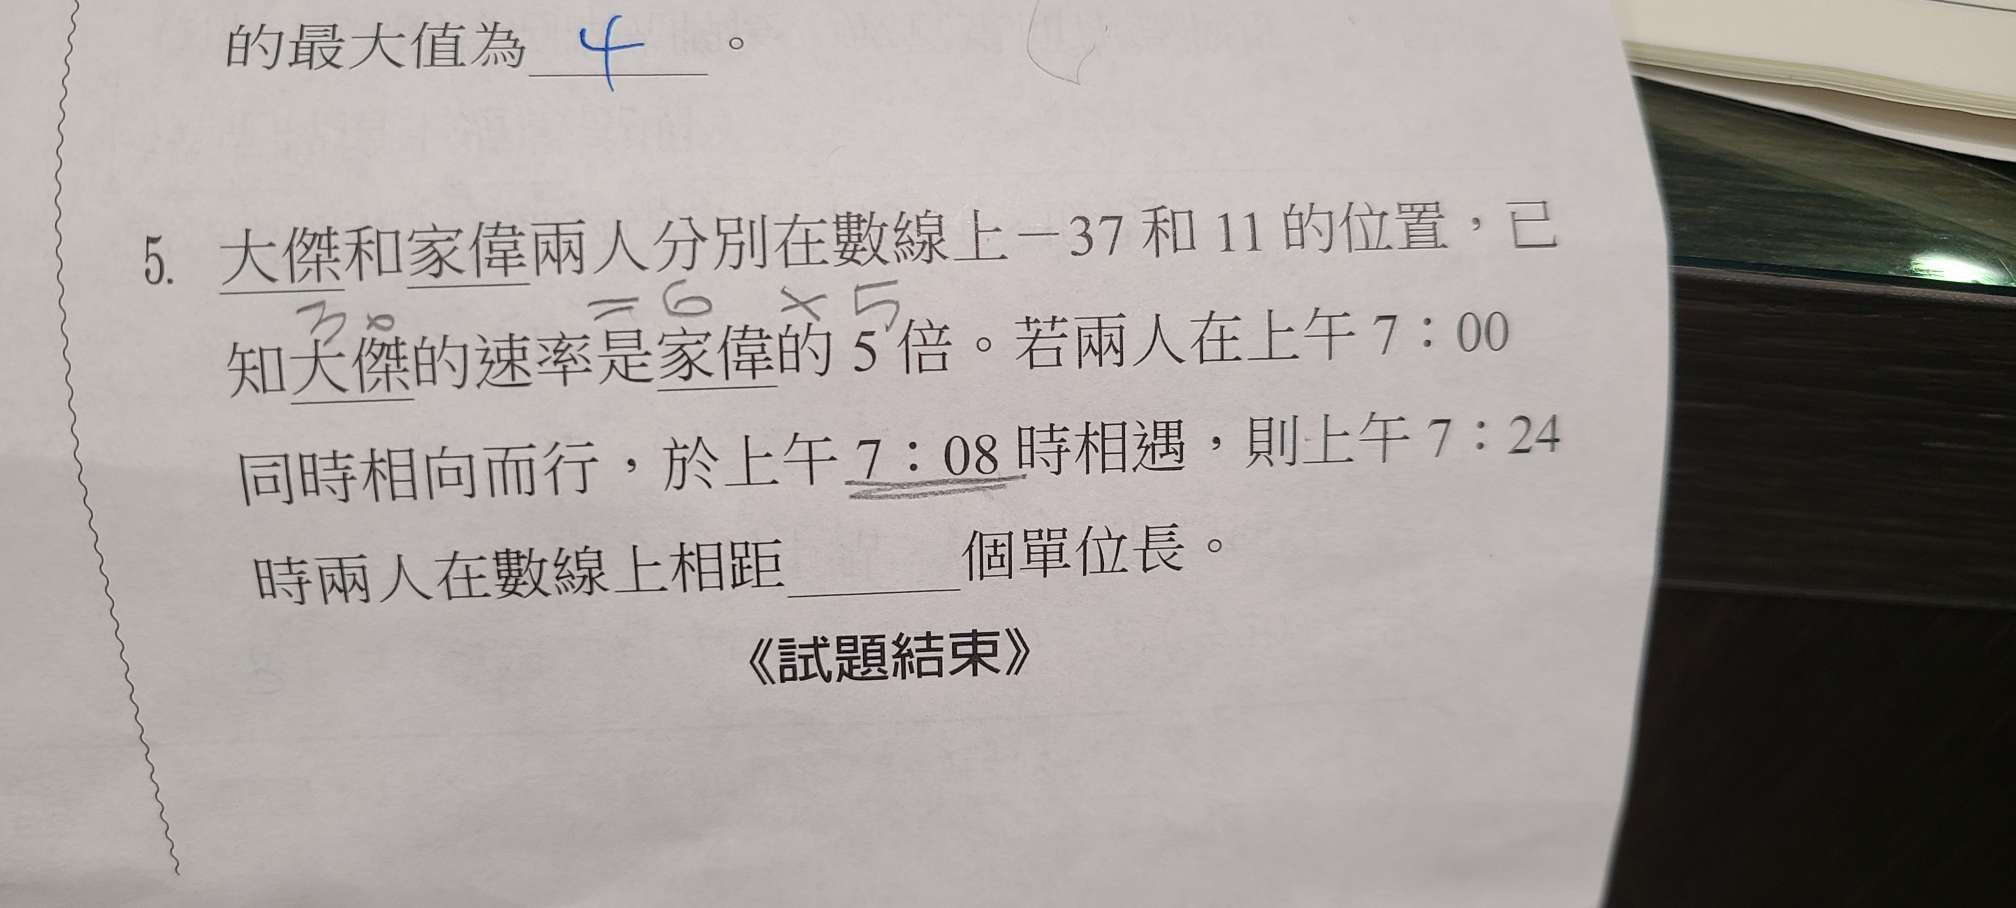 的最大值為 4 。
5. 大傑和家偉兩人分別在數線上－37 和 11 的位置，已
= 6 × 5
知大傑的速率是家偉的 5 倍。若兩人在上午 7：00
同時相向而行，於上午 7：08 時相遇，則上午 7：24
時兩人在數線上相距 個單位長。
《試題結束》